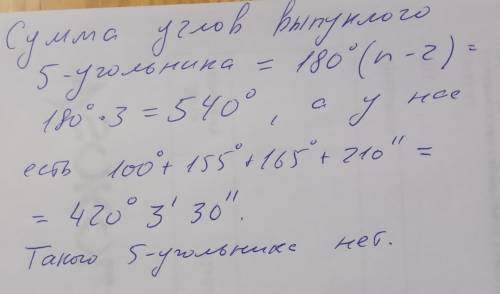 Сумма углов выпуклого
5-угольника = 180°(n-2) =
180°·3 = 540°, а у нас
есть 100°+155°+165°+210" =
= 420° 3' 30".
Такого 5-угольника нет.